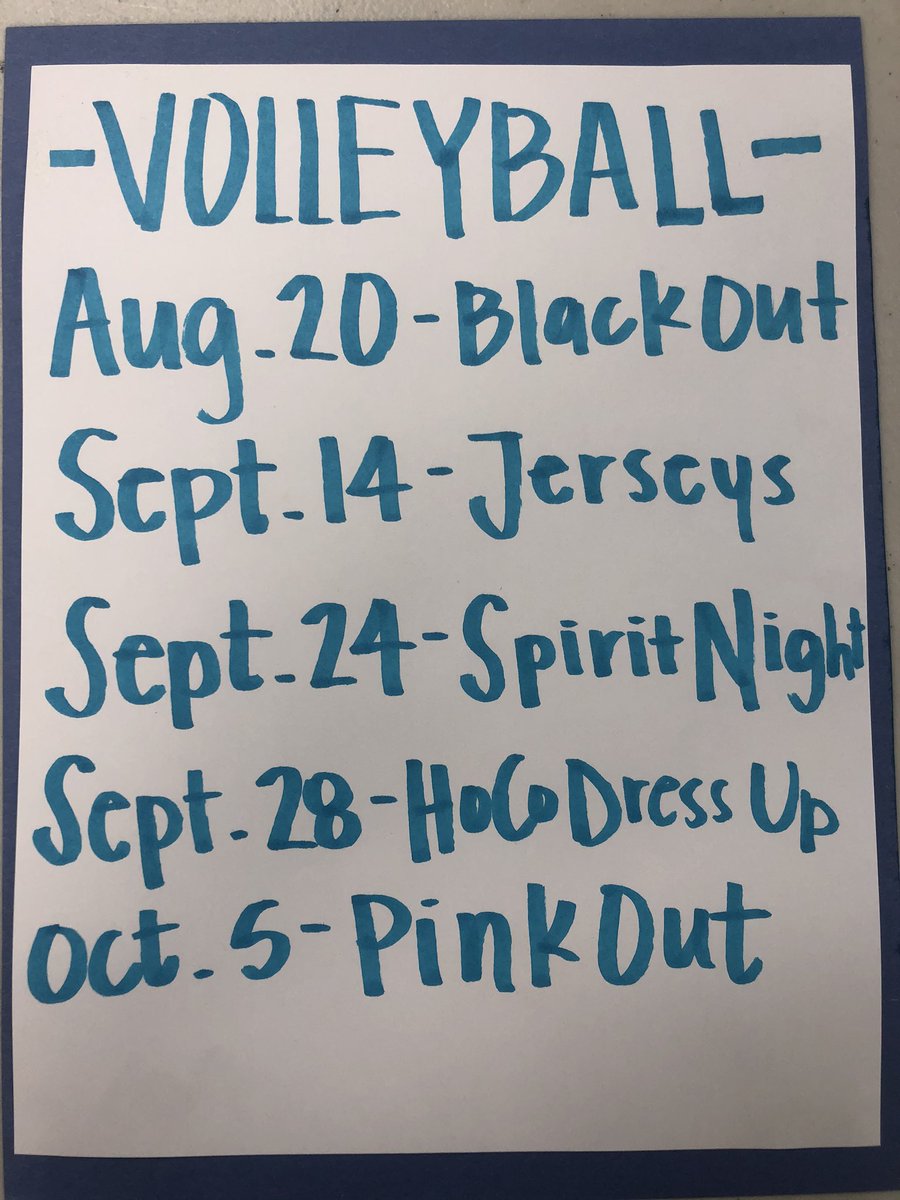 -VOLLEYBALL-
Aug. 20 - Black Out
Sept. 14 - Jerseys
Sept. 24 - Spirit Night
Sept. 28 - HoCo Dress Up
Oct. 5 - Pink Out